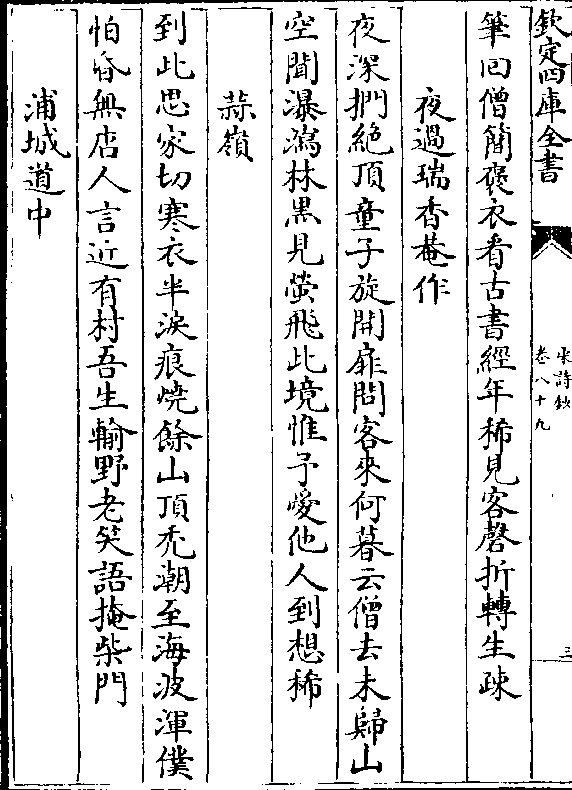 欽定四庫全書
宋詩鈔
卷八十九
三
筆回僧簡褒衣看古書經年稀見客磬折轉生疎
夜過瑞香菴作
夜深捫絶頂童子旋開扉問客來何暮云僧去未歸山
空聞瀑瀉林黒見螢飛此境惟予愛他人到想稀
蒜嶺
到此思家切寒衣半淚痕燒餘山頂禿潮至海波渾僕
怕昏無店人言近有村吾生輸野老笑語掩柴門
浦城道中